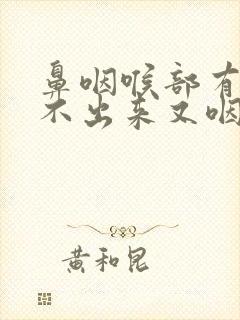 鼻咽喉部有
不出来又咽
黄和昆